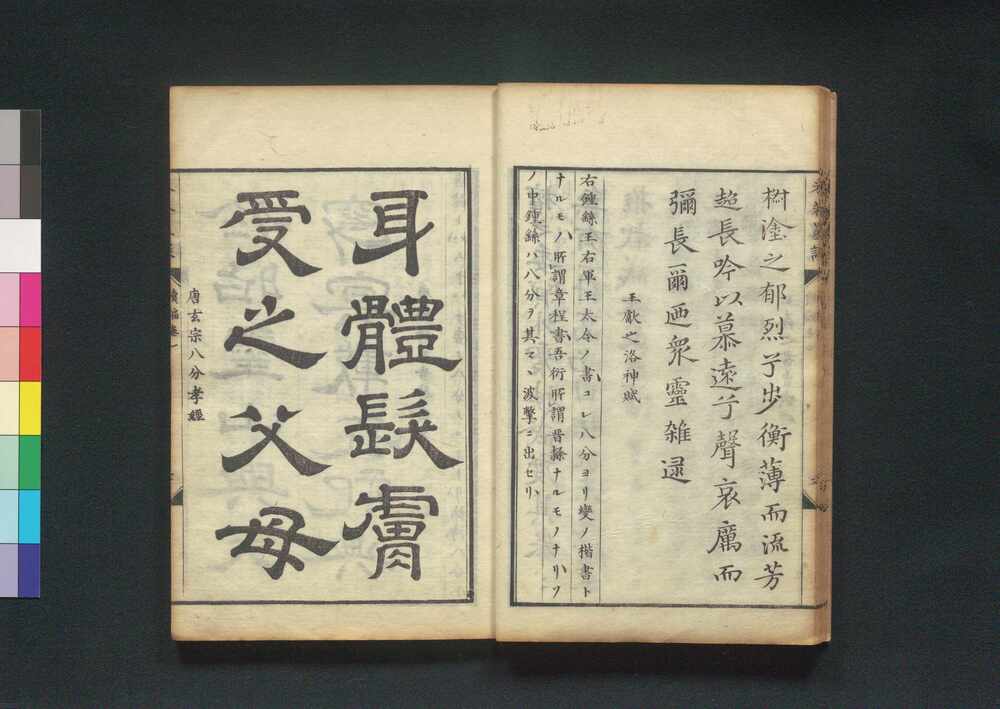 樹塗之郁烈兮步衡薄而流芳
超長吟以慕遠兮聲哀厲而
彌長爾迺衆靈雜遝
王獻之洛神賦
右鍾繇王右軍王太令ノ書コレ八分ヨリ變ノ楷書ト
ナルモノハ所謂章程書吾衍所謂晉隸ナルモノナリソ
ノ中鍾繇ハ八分ヲ其マヽ波擊ニ出セリ
身體髮膚
受之父母
唐玄宗八分孝經